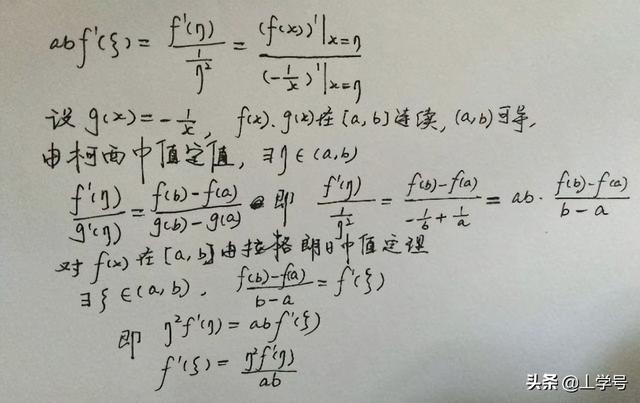 abf'(ξ) = f'(η) / (1/η²) = (f(x))'|x=η / (-1/x)'|x=η
设 g(x) = -1/x, f(x)、g(x)在[a,b]连续, (a,b)可导,
由柯西中值定值, ∃η∈(a,b)
f'(η)/g'(η) = (f(b)-f(a))/(g(b)-g(a)) 即 f'(η)/(1/η²) = (f(b)-f(a))/(-1/b+1/a) = ab·(f(b)-f(a))/(b-a)
对f(x)在[a,b]由拉格朗日中值定理
∃ξ∈(a,b), (f(b)-f(a))/(b-a) = f'(ξ)
即 η²f'(η) = abf'(ξ)
f'(ξ) = η²f'(η)/ab
头条 @上学号